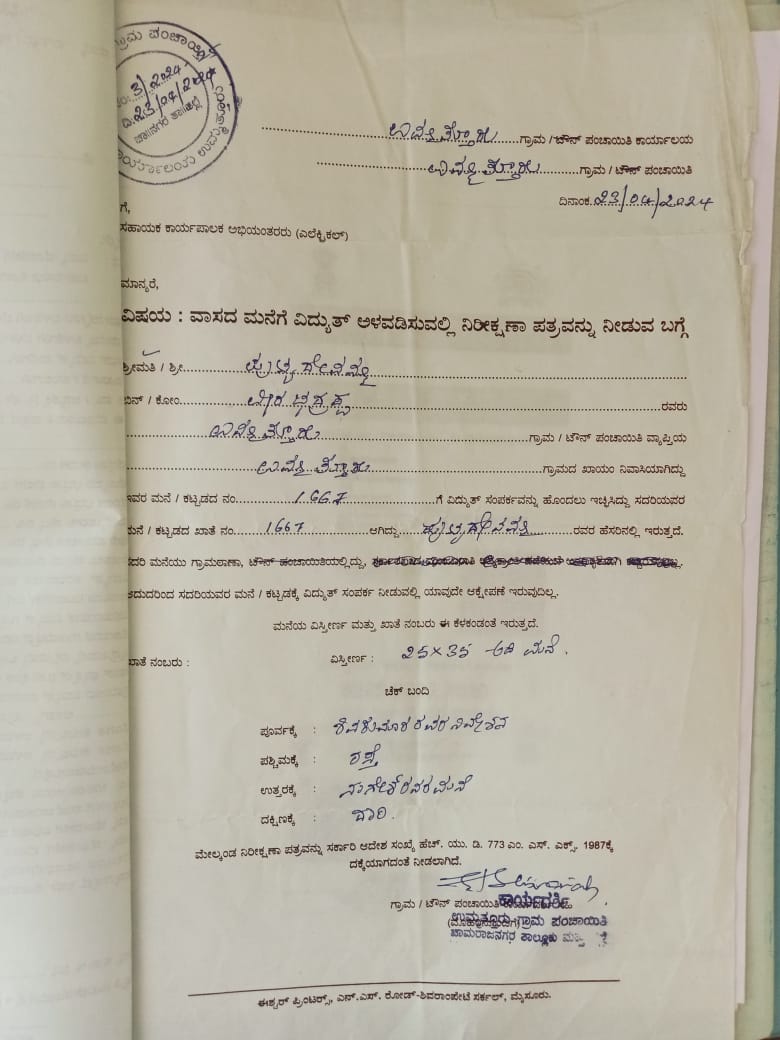 ಗ್ರಾಮ ಪಂಚಾಯ್ತಿ
3/2024
ದಿ:23/04/2024
ಚಾ||ನಗರ ತಾ||
ಕಾರ್ಯಾಲಯ ಉಮ್ಮತ್ತೂರು
ಉಮ್ಮತ್ತೂರು ಗ್ರಾಮ / ಟೌನ್ ಪಂಚಾಯಿತಿ ಕಾರ್ಯಾಲಯ
ಉಮ್ಮತ್ತೂರು ಗ್ರಾಮ / ಟೌನ್ ಪಂಚಾಯಿತಿ
ದಿನಾಂಕ 23/04/2024
ಗೆ,
ಸಹಾಯಕ ಕಾರ್ಯಪಾಲಕ ಅಭಿಯಂತರರು (ಎಲೆಕ್ಟ್ರಿಕಲ್)
ಮಾನ್ಯರೆ,
ವಿಷಯ : ವಾಸದ ಮನೆಗೆ ವಿದ್ಯುತ್ ಅಳವಡಿಸುವಲ್ಲಿ ನಿರೀಕ್ಷಣಾ ಪತ್ರವನ್ನು ನೀಡುವ ಬಗ್ಗೆ
ಶ್ರೀಮತಿ / ಶ್ರೀ
ಬಿನ್ / ಕೋಂ. ವೀರಭದ್ರಪ್ಪ ರವರು
ಉಮ್ಮತ್ತೂರು ಗ್ರಾಮ / ಟೌನ್ ಪಂಚಾಯಿತಿ ವ್ಯಾಪ್ತಿಯ
ಉಮ್ಮತ್ತೂರು ಗ್ರಾಮದ ಖಾಯಂ ನಿವಾಸಿಯಾಗಿದ್ದು
ಇವರ ಮನೆ / ಕಟ್ಟಡದ ನಂ. 1667 ಗೆ ವಿದ್ಯುತ್ ಸಂಪರ್ಕವನ್ನು ಹೊಂದಲು ಇಚ್ಛಿಸಿದ್ದು ಸದರಿಯವರ
ಮನೆ / ಕಟ್ಟಡದ ಖಾತೆ ನಂ. 1667 ಆಗಿದ್ದು ರವರ ಹೆಸರಿನಲ್ಲಿ ಇರುತ್ತದೆ.
ಸದರಿ ಮನೆಯು ಗ್ರಾಮಠಾಣಾ, ಟೌನ್ ಪಂಚಾಯಿತಿಯಲ್ಲಿದ್ದು,
ಆದುದರಿಂದ ಸದರಿಯವರ ಮನೆ / ಕಟ್ಟಡಕ್ಕೆ ವಿದ್ಯುತ್ ಸಂಪರ್ಕ ನೀಡುವಲ್ಲಿ ಯಾವುದೇ ಆಕ್ಷೇಪಣೆ ಇರುವುದಿಲ್ಲ.
ಮನೆಯ ವಿಸ್ತೀರ್ಣ ಮತ್ತು ಖಾತೆ ನಂಬರು ಈ ಕೆಳಕಂಡಂತೆ ಇರುತ್ತದೆ.
ಖಾತೆ ನಂಬರು : ವಿಸ್ತೀರ್ಣ : 25×35 ಅಡಿ ಮನೆ.
ಚೆಕ್ ಬಂದಿ
ಪೂರ್ವಕ್ಕೆ : ಶಿವಕುಮಾರ ರವರ ನಿವೇಶನ
ಪಶ್ಚಿಮಕ್ಕೆ : ರಸ್ತೆ
ಉತ್ತರಕ್ಕೆ : ನಾಗೇಶ್ ರವರ ಮನೆ
ದಕ್ಷಿಣಕ್ಕೆ : ದಾರಿ.
ಮೇಲ್ಕಂಡ ನಿರೀಕ್ಷಣಾ ಪತ್ರವನ್ನು ಸರ್ಕಾರಿ ಆದೇಶ ಸಂಖ್ಯೆ ಹೆಚ್. ಯು. ಡಿ. 773 ಎಂ. ಎಸ್. ಎಕ್ಸ್. 1987ಕ್ಕೆ
ದಕ್ಕೆಯಾಗದಂತೆ ನೀಡಲಾಗಿದೆ.
ಗ್ರಾಮ / ಟೌನ್ ಪಂಚಾಯಿತಿ ಕಾರ್ಯದರ್ಶಿ
ಉಮ್ಮತ್ತೂರು ಗ್ರಾಮ ಪಂಚಾಯಿತಿ
ಚಾಮರಾಜನಗರ ತಾಲ್ಲೂಕು ಮತ್ತು
ಈಶ್ವರ್ ಪ್ರಿಂಟರ್ಸ್, ಎನ್.ಎಸ್. ರೋಡ್-ಶಿವರಾಂಪೇಟೆ ಸರ್ಕಲ್, ಮೈಸೂರು.